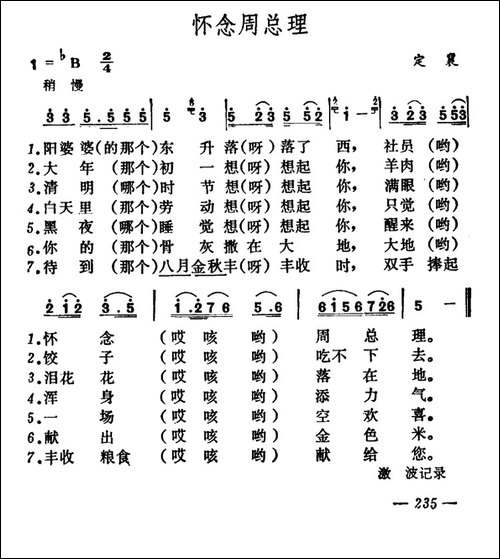 怀念周总理
1=♭B 2/4
定襄
稍慢
1.阳婆婆(的那个)东 升落(呀)落了 西, 社员(哟)
2.大 年(那个)初 一想(呀)想起 你, 羊肉(哟)
3.清 明(哪个)时 节想(呀)想起 你, 满眼(哟)
4.白天里(那个)劳 动想(呀)想起 你, 只觉(哟)
5.黑 夜(哪个)睡 觉想(呀)想起 你, 醒来(哟)
6.你 的(那个)骨 灰撒在大 地, 大地(哟)
7.待 到(那个)八月金秋丰(呀)丰收 时, 双手 捧起
1.怀 念 (哎 咳 哟) 周 总 理。
2.饺 子 (哎 咳 哟) 吃不 下 去。
3.泪花 花 (哎 咳 哟) 落 在 地。
4.浑 身 (哎 咳 哟) 添 力 气。
5.一 场 (哎 咳 哟) 空 欢 喜。
6.献 出 (哎 咳 哟) 金 色 米。
7.丰收 粮食 (哎 咳 哟) 献 给 您。
激 波记录
— 235 —